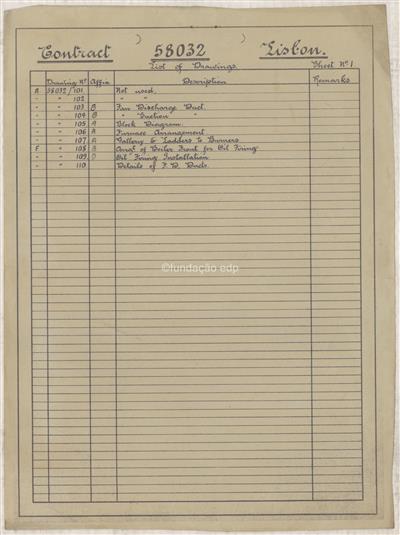 Contract 58032 Lisbon.
List of Drawings. Sheet Nº 1
Drawing Nº Affix Description Remarks
A 58032/101 Not used.
" " 102 " "
" " 103 B Fan Discharge Duct.
" " 104 B " Suction "
" " 105 A Block Diagram.
" " 106 A Furnace Arrangement
" " 107 A Gallery & Ladders to Burners
F " 108 B Arrgt of Boiler Front for Oil Firing
" " 109 D Oil Firing Installation
" " 110 Details of F.D. Ducts.
©fundação edp